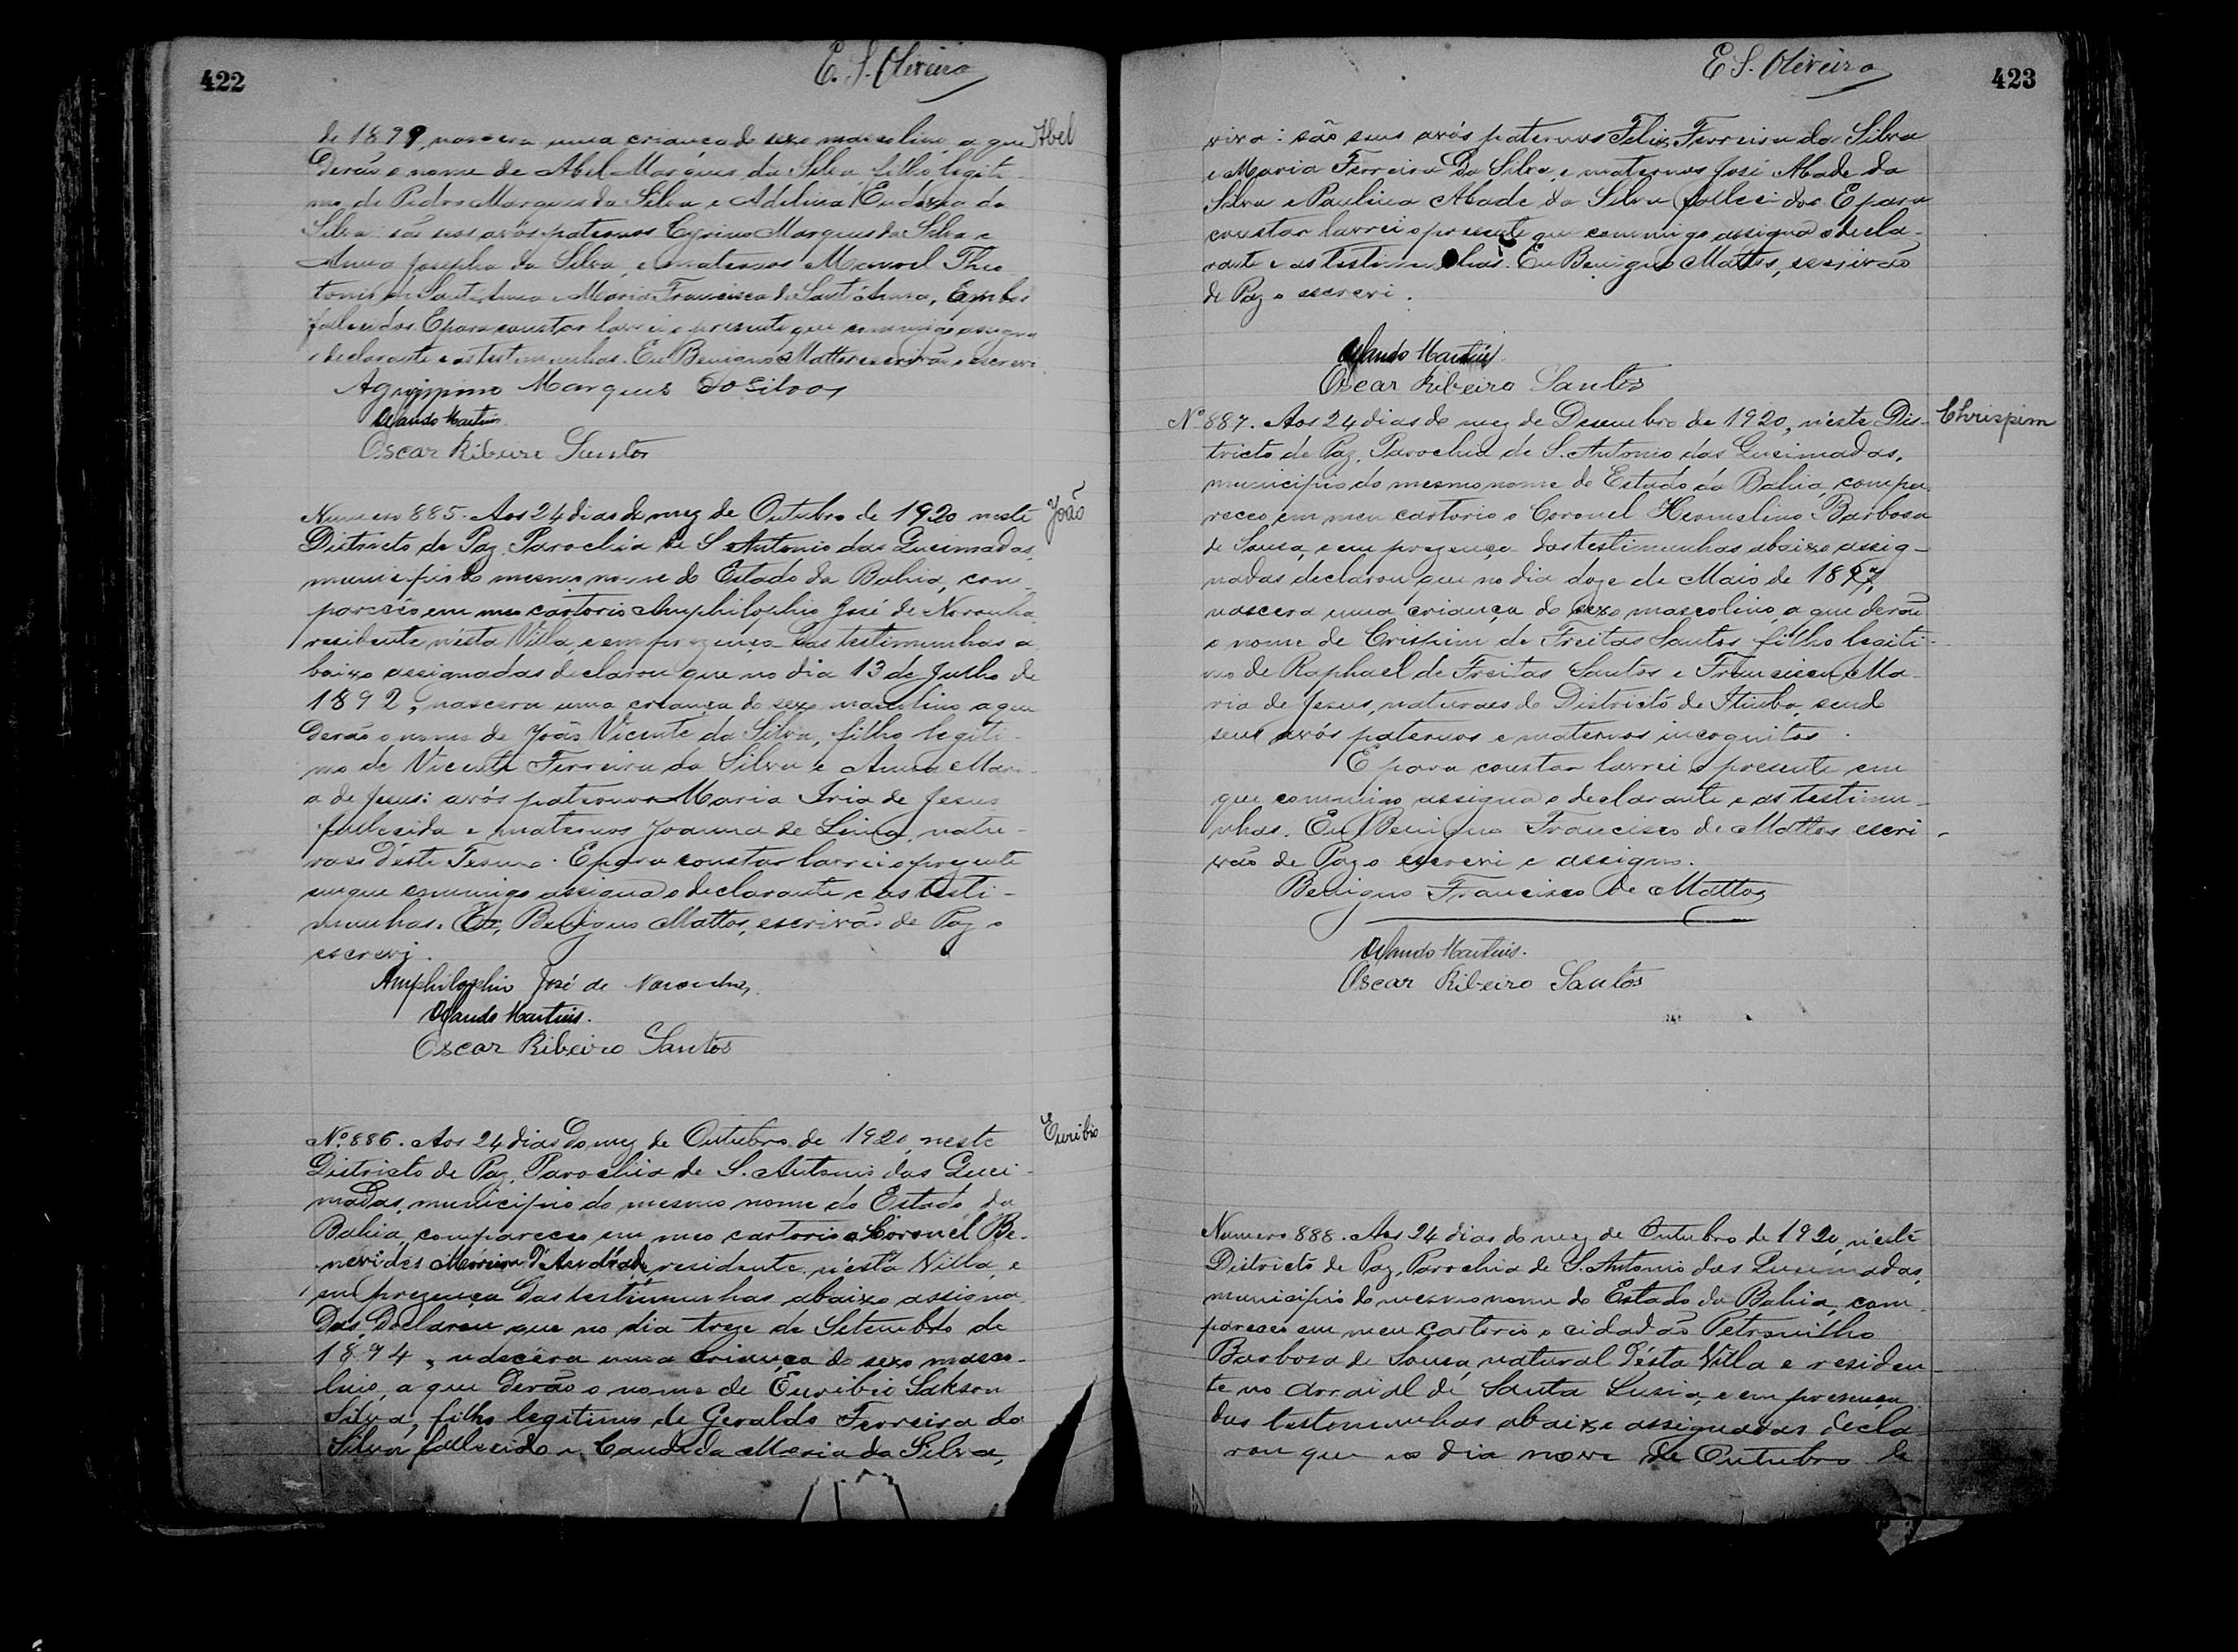 422
E. S. Oliveira
de 1899, nascera uma criança do sexo masculino, a que
Abel
derão o nome de Abel Marques da Silva, filho legiti-
mo de Pedro Marques da Silva e Adelina Eudoxia da
Silva: são seus avós paternos Cyrino Marques da Silva e
Anna Josepha da Silva, e maternos Manoel Theo
tonio de Sant'Anna e Maria Francisca de Sant'Anna, Ambos
fallecidos. E para constar lavrei o presente que commigo assigna
o declarante e as testemunhas. Eu Benigno Mattos escrivão o escrevi.
Agrippino Marques da Silva
Orlando Martins
Oscar Ribeiro Santos
Numero 885. Aos 24 dias do mez de Outubro de 1920 neste
João
Districto de Paz, Parochia de S. Antonio das Queimadas,
municipio do mesmo nome do Estado da Bahia, com-
pareceo em meo cartorio Amphilophio José de Noronha,
residente nésta Villa, e em prezença das testimunhas a
baixo assignadas declarou que no dia 13 de Julho de
1892, nascera uma criança do sexo masculino a que
derão o nome de João Vicente da Silva, filho legiti-
mo de Vicente Ferreira da Silva e Anna Mari-
a de Jesus: avós paternos Maria Iria de Jesus
fallecida e maternos Joanna de Lima, natu-
raes d'éste Termo. E para constar lavrei o prezente
em que commigo assigna o declarante e as testi-
munhas. Eu, Benigno Mattos, escrivão de Paz o
escrevi.
Amphilophio José de Noronha,
Orlando Martins.
Oscar Ribeiro Santos
Nº 886. Aos 24 dias do mez de Outubro de 1920, neste
Euribio
Districto de Paz, Parochia de S. Antonio das Quei-
madas, municipio do mesmo nome do Estado da
Bahia, compareceo em meo cartorio o Coronel Be-
nevides Moreira d'Andrade residente nésta Villa, e
em prezença das testimunhas abaixo assigna
das, declarou que no dia treze de Setembro de
1894, nascera uma criança do sexo mascu-
lino, a que derão o nome de Euribio Sakson
Silva, filho legitimo de Geraldo Ferreira da
Silva fallecido e Candida Maria da Silva,
E S. Oliveira
423
viva: são seus avós paternos Felix Ferreira da Silva
e Maria Ferreira da Silva, e maternos José Abade da
Silva e Paulina Abade da Silva fallecidos. E para
constar lavrei o presente que commigo assigna o decla-
rante e as testimunhas. Eu Benigno Mattos, escrivão
de Paz o escrevi.
Orlando Martins
Oscar Ribeiro Santos
Nº 887. Aos 24 dias do mez de Desembro de 1920, n'éste Dis-
Chrispim
tricto de Paz, Parochia de S. Antonio das Queimadas,
municipio do mesmo nome do Estado da Bahia, compa-
receo em meu cartorio o Coronel Hermelino Barbosa
de Sousa, e em prezença das testimunhas abaixo assig-
nadas declarou que no dia doze de Maio de 1897,
nascera uma criança do sexo masculino, a que derão
o nome de Crispim de Freitas Santos, filho legiti-
mo de Raphael de Freitas Santos e Francisca Ma-
ria de Jesus, naturaes do Districto de Itiuba, sendo
seus avós paternos e maternos incognitos.
E para constar lavrei o presente em
que commigo assigna o declarante e as testimu-
nhas. Eu Benigno Francisco de Mattos, escri-
vão de Paz o escrevi e assigno.
Benigno Francisco de Mattos
Orlando Martins.
Oscar Ribeiro Santos
Numero 888. Aos 24 dias do mez de Outubro de 1920, n'éste
Districto de Paz, Parochia de S. Antonio das Queimadas,
municipio do mesmo nome do Estado da Bahia, com-
pareceo em meu cartorio o cidadão Petronilho
Barbosa de Sousa natural d'ésta Villa e residen-
te no arraial de Santa Lusia, e em presença
das testemunhas abaixo assignadas decla
rou que no dia nove de Outubro de